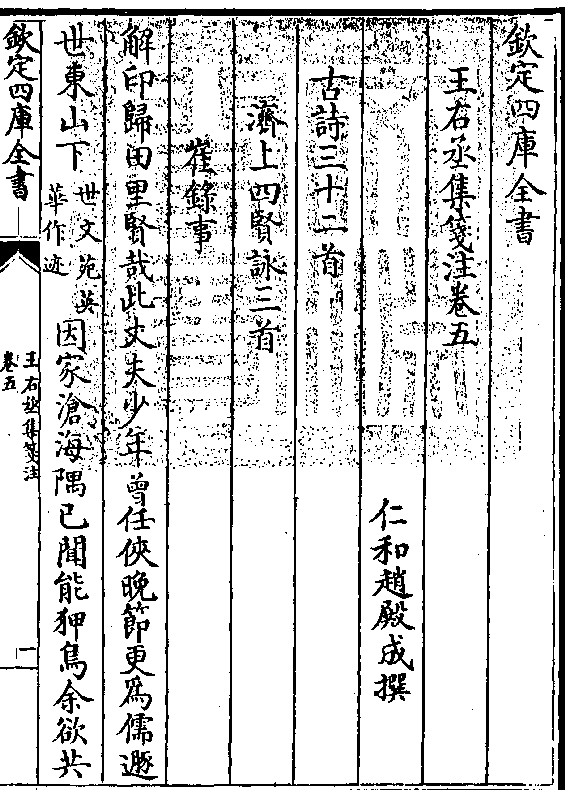 欽定四庫全書
王右丞集箋注卷五
仁和趙殿成撰
古詩三十二首
濟上四賢詠三首
崔錄事
解印歸田里賢哉此丈夫少年曾任俠晚節更為儒遯
世東山下世文苑英華作迹因家滄海隅已聞能狎鳥余欲共
欽定四庫全書
王右丞集箋注
卷五
一